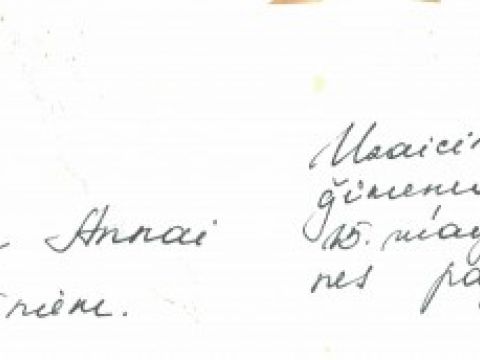 Annai
niem.
Uzaici
ģimene
15. maij
nes pa